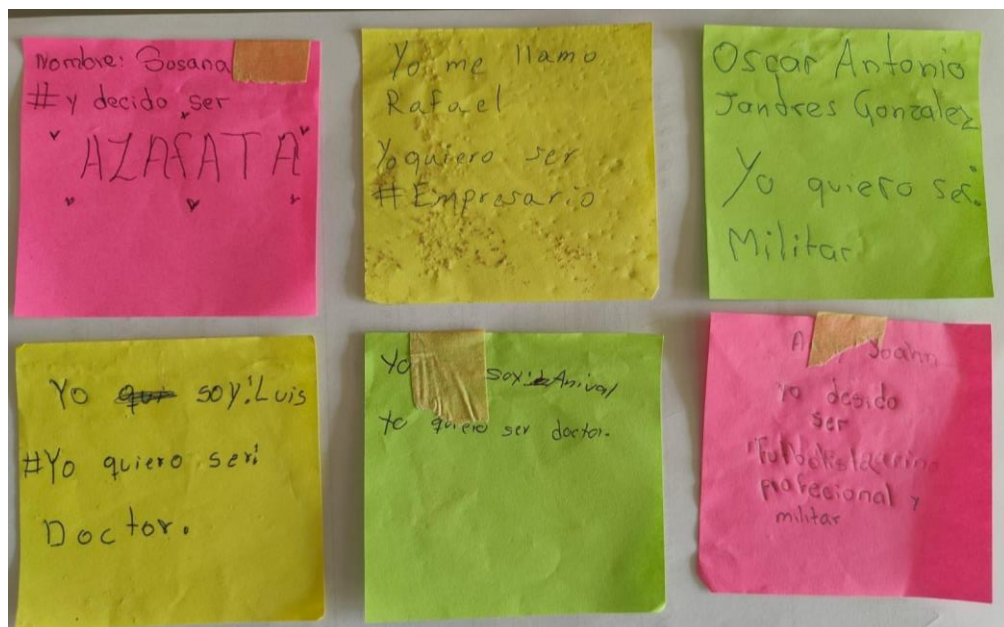 Nombre: Sosana
#y decido ser
AZAFATA
Yo me llamo
Rafael
Yo quiero ser
#Empresario
Oscar Antonio
Jandres Gonzalez
Yo quiero ser:
Militar
Yo soy: Luis
#Yo quiero ser:
Doctor.
Yo soy: Anival
Yo quiero ser doctor.
Joahn
yo desido
ser
profecional y
militar